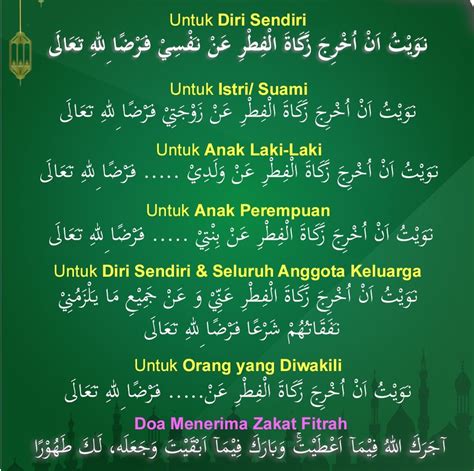 Untuk Diri Sendiri
نَوَيْتُ اَنْ اُخْرِجَ زَكَاةَ الْفِطْرِ عَنْ نَفْسِيْ فَرْضًا لِلهِ تَعَالَى
Untuk Istri/ Suami
نَوَيْتُ اَنْ اُخْرِجَ زَكَاةَ الْفِطْرِ عَنْ زَوْجَتِيْ فَرْضًا لِلهِ تَعَالَى
Untuk Anak Laki-Laki
نَوَيْتُ اَنْ اُخْرِجَ زَكَاةَ الْفِطْرِ عَنْ وَلَدِيْ ..... فَرْضًا لِلهِ تَعَالَى
Untuk Anak Perempuan
نَوَيْتُ اَنْ اُخْرِجَ زَكَاةَ الْفِطْرِ عَنْ بِنْتِيْ ..... فَرْضًا لِلهِ تَعَالَى
Untuk Diri Sendiri & Seluruh Anggota Keluarga
نَوَيْتُ اَنْ اُخْرِجَ زَكَاةَ الْفِطْرِ عَنِّيْ وَ عَنْ جَمِيْعِ مَا يَلْزَمُنِيْ
نَفَقَاتُهُمْ شَرْعًا فَرْضًا لِلهِ تَعَالَى
Untuk Orang yang Diwakili
نَوَيْتُ اَنْ اُخْرِجَ زَكَاةَ الْفِطْرِ عَنْ..... فَرْضًا لِلهِ تَعَالَى
Doa Menerima Zakat Fitrah
آجَرَكَ اللهُ فِيْمَآ اَعْطَيْتَ وَبَارَكَ فِيْمَآ اَبْقَيْتَ وَجَعَلَه، لَكَ طَهُوْرًا